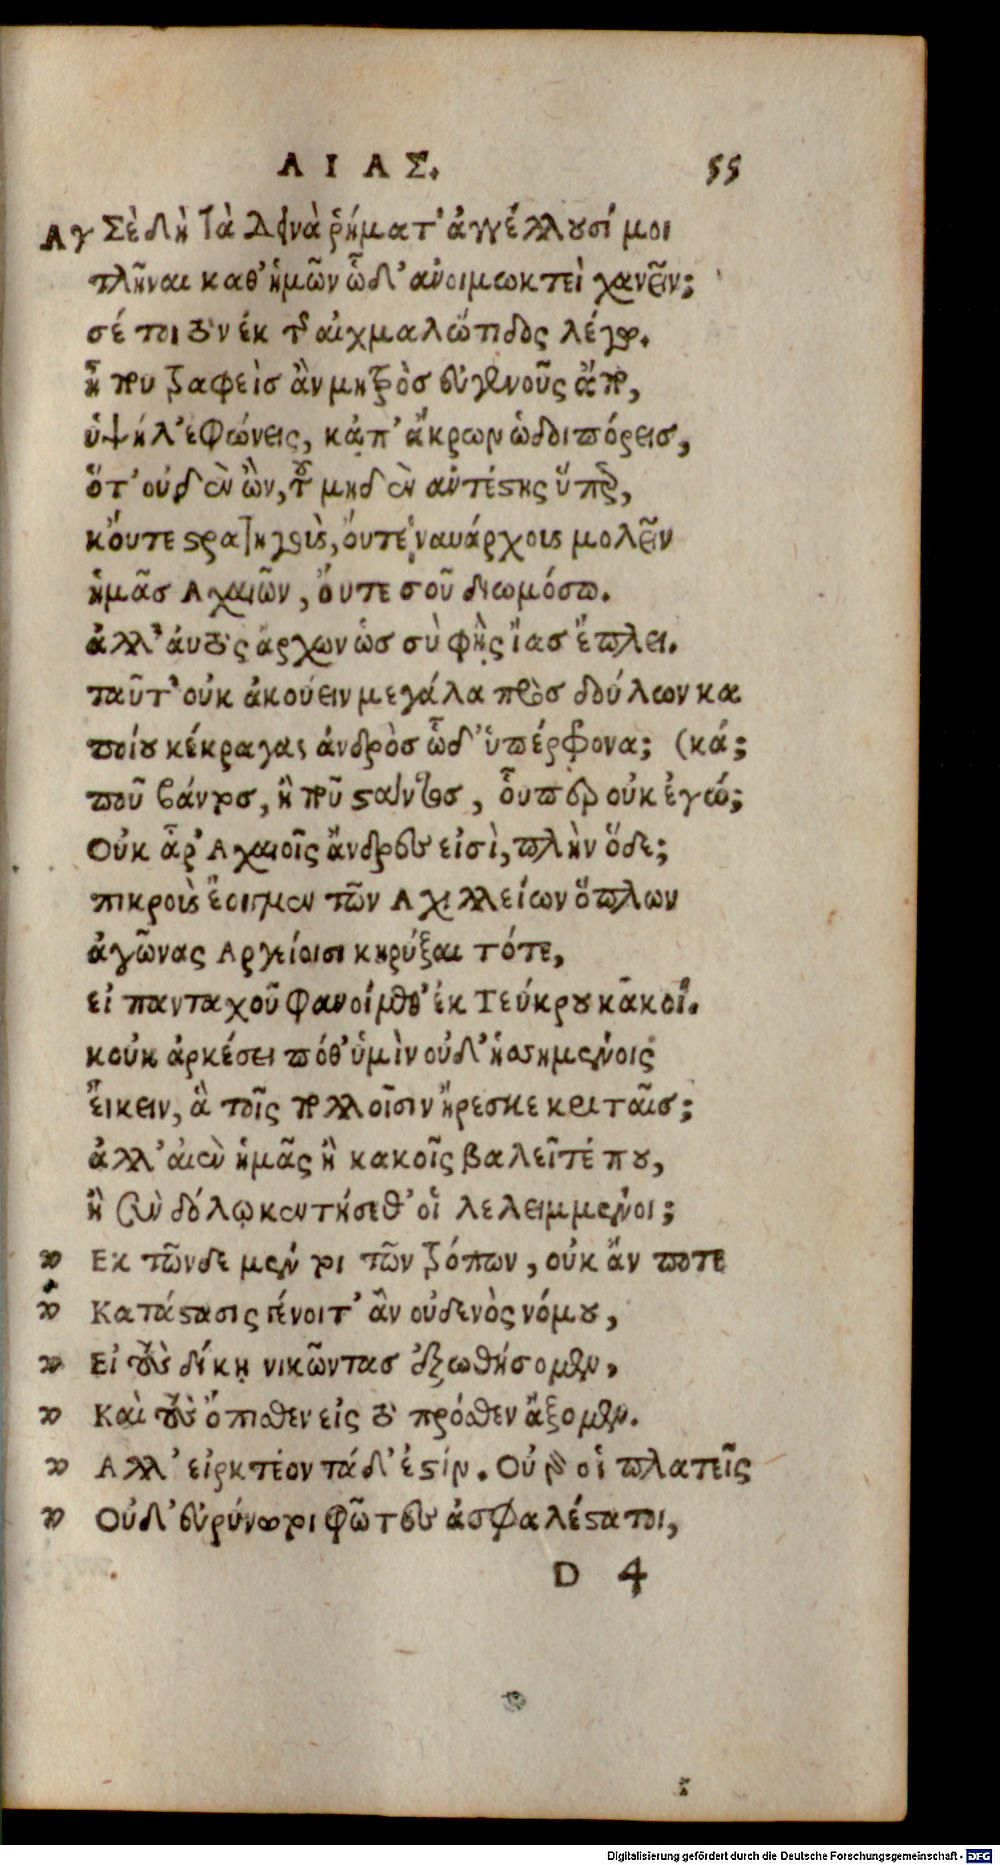 ΑΙΑΣ. 55
Αγ Σὲ δὴ τὰ δεινὰ ῥήματ' ἀγγέλλουσί μοι
τλῆναι καθ' ἡμῶν ὧδ' ἀνοιμωκτεὶ χανεῖν;
σέ τοι τὸν ἐκ τῆς αἰχμαλώτιδος λέγω.
ἦ που τραφεὶς ἂν μητρὸς εὐγενοῦς ἄπο,
ὑψήλ' ἐφώνεις, κἀπ' ἄκρων ὡδοιπόρεις,
ὅτ' οὐδὲν ὢν, τοῦ μηδὲν ἀντέστης ὕπερ,
κ' οὔτε στρατηγοὺς, οὔτε ναυάρχους μολεῖν
ἡμᾶς Αχαιῶν, οὔτε σοῦ διωμόσω.
ἀλλ' αὐτὸς ἄρχων ὡς σὺ φῂς Αἴας ἔπλει.
ταῦτ' οὐκ ἀκούειν μεγάλα πρὸς δούλων κα
ποίου κέκραγας ἀνδρὸς ὧδ' ὑπέρφρονα; (κά;
ποῦ βάντος, ἢ ποῦ στάντος, οὗπερ οὐκ ἐγώ;
Οὐκ ἆρ' Αχαιοῖς ἄνδρες εἰσὶ, πλὴν ὅδε;
πικροὺς ἔοιγμεν τῶν Αχιλλείων ὅπλων
ἀγῶνας Αργείοισι κηρύξαι τότε,
εἰ πανταχοῦ φανοίμεθ' ἐκ Τεύκρου κακοί.
κοὐκ ἀρκέσει πόθ' ὑμὶν οὐδ' ἡσσημένοις
εἴκειν, ἃ τοῖς πολλοῖσιν ἤρεσκε κριταῖς;
ἀλλ' αἰὲν ἡμᾶς ἢ κακοῖς βαλεῖτέ που,
ἢ σὺν δόλῳ κεντήσεθ' οἱ λελειμμένοι;
" Εκ τῶνδε μέντοι τῶν τρόπων, οὐκ ἄν ποτε
" Κατάστασις γένοιτ' ἂν οὐδενὸς νόμου,
" Εἰ τοὺς δίκῃ νικῶντας ἐξωθήσομεν,
" Καὶ τοὺς ὄπισθεν εἰς τὸ πρόσθεν ἄξομεν.
" Αλλ' εἰρκτέον τάδ' ἐστίν. Οὐ γὰρ οἱ πλατεῖς
" Οὐδ' εὐρύνωτοι φῶτες ἀσφαλέστατοι,
D 4
Digitalisierung gefördert durch die Deutsche Forschungsgemeinschaft - DFG